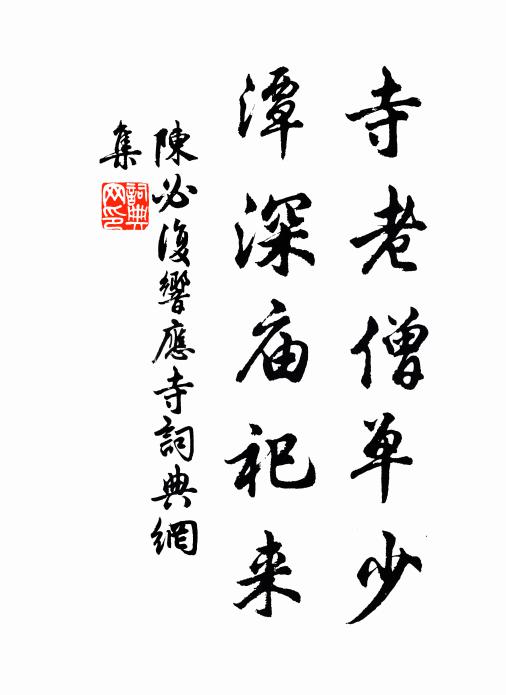 寺老僧单少
潭深庙祀来
陳必復響應寺詞典網
集
詞典网印